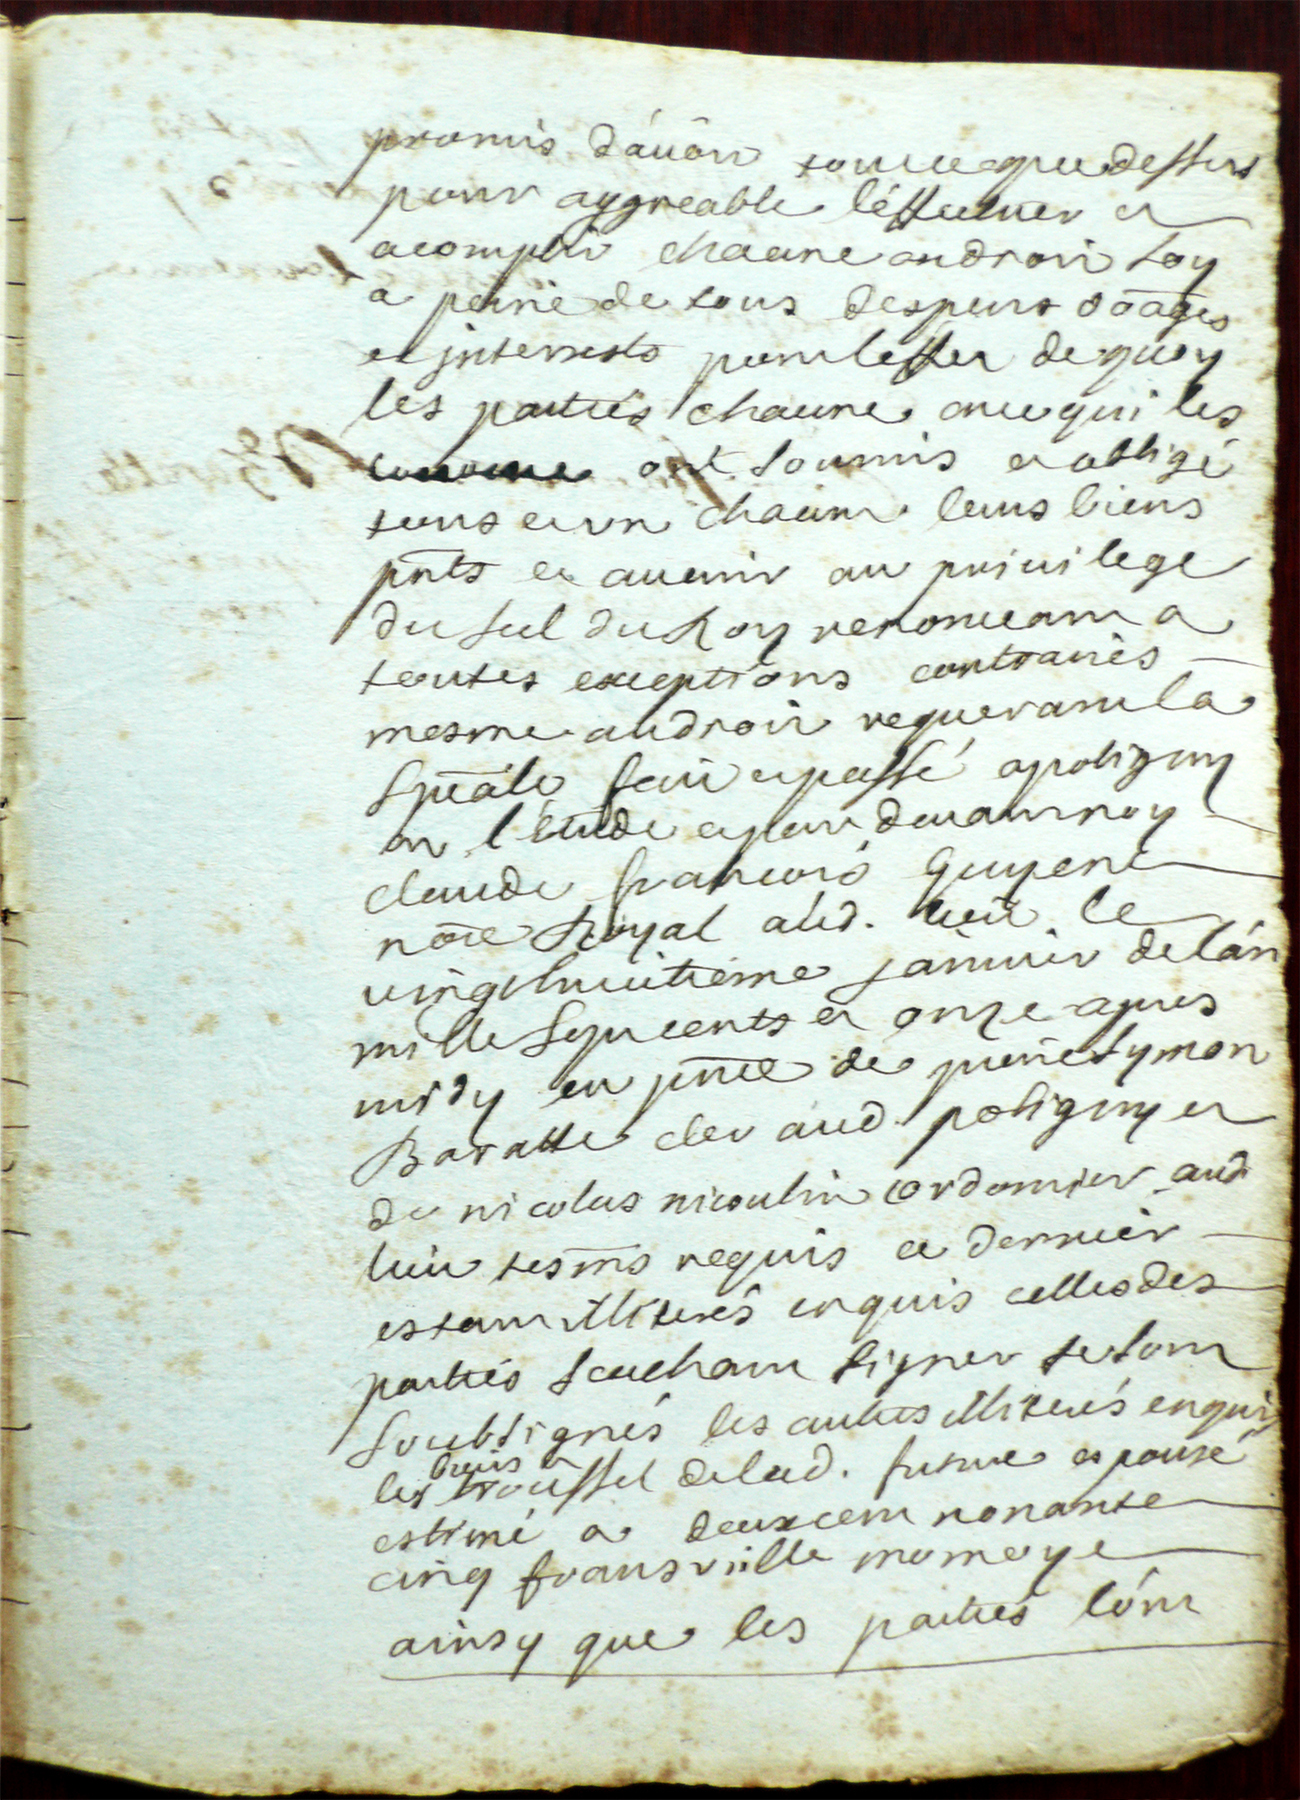 promis d'auoir tout ce que dessus
pour aggreable l'effectuer et
acomplir chacune en droit soy
a peine de tous despens doages
et jnterrests pour l'effect de quoy
les parties chacune en ce qui les
concerne ont soumis et obligé
tous et vn chacun leurs biens
pnts et auenir au priuilege
du scel du Roy renonceant a
toutes exceptions contraires
mesme au droit requerant la
speâle fait et passé a poligny
en l'étude et par deuant moy
claude francois guyenet
nore Royal aud. lieu le
vingthuitieme januier de l'an
mille sept cents et onze apres
midy en pnce de pierre symon
Baratte clerc aud. poligny et
de nicolas nicoulin cordonnier aud
lieu tesms requis ce dernier
estant illiterés enquis celles des
parties scachant signer se sont
soubsignés les autres illiterés enquis
les biens trossel de lad. future espouse
estimé a deux cent nonante
cinq frans vielle monoye
ainsy que les parties l'ont